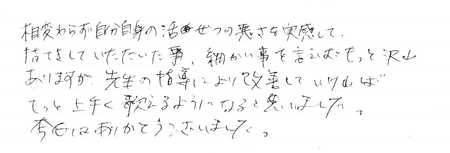 相変わらず自分自身の活ぜつの悪さを実感して、
指てきしていただいた事、細かい事を言えばもっと沢山
ありますが、先生の指導により改善していければ
もっと上手く歌えるようになると思いました。
今日はありがとうございました。